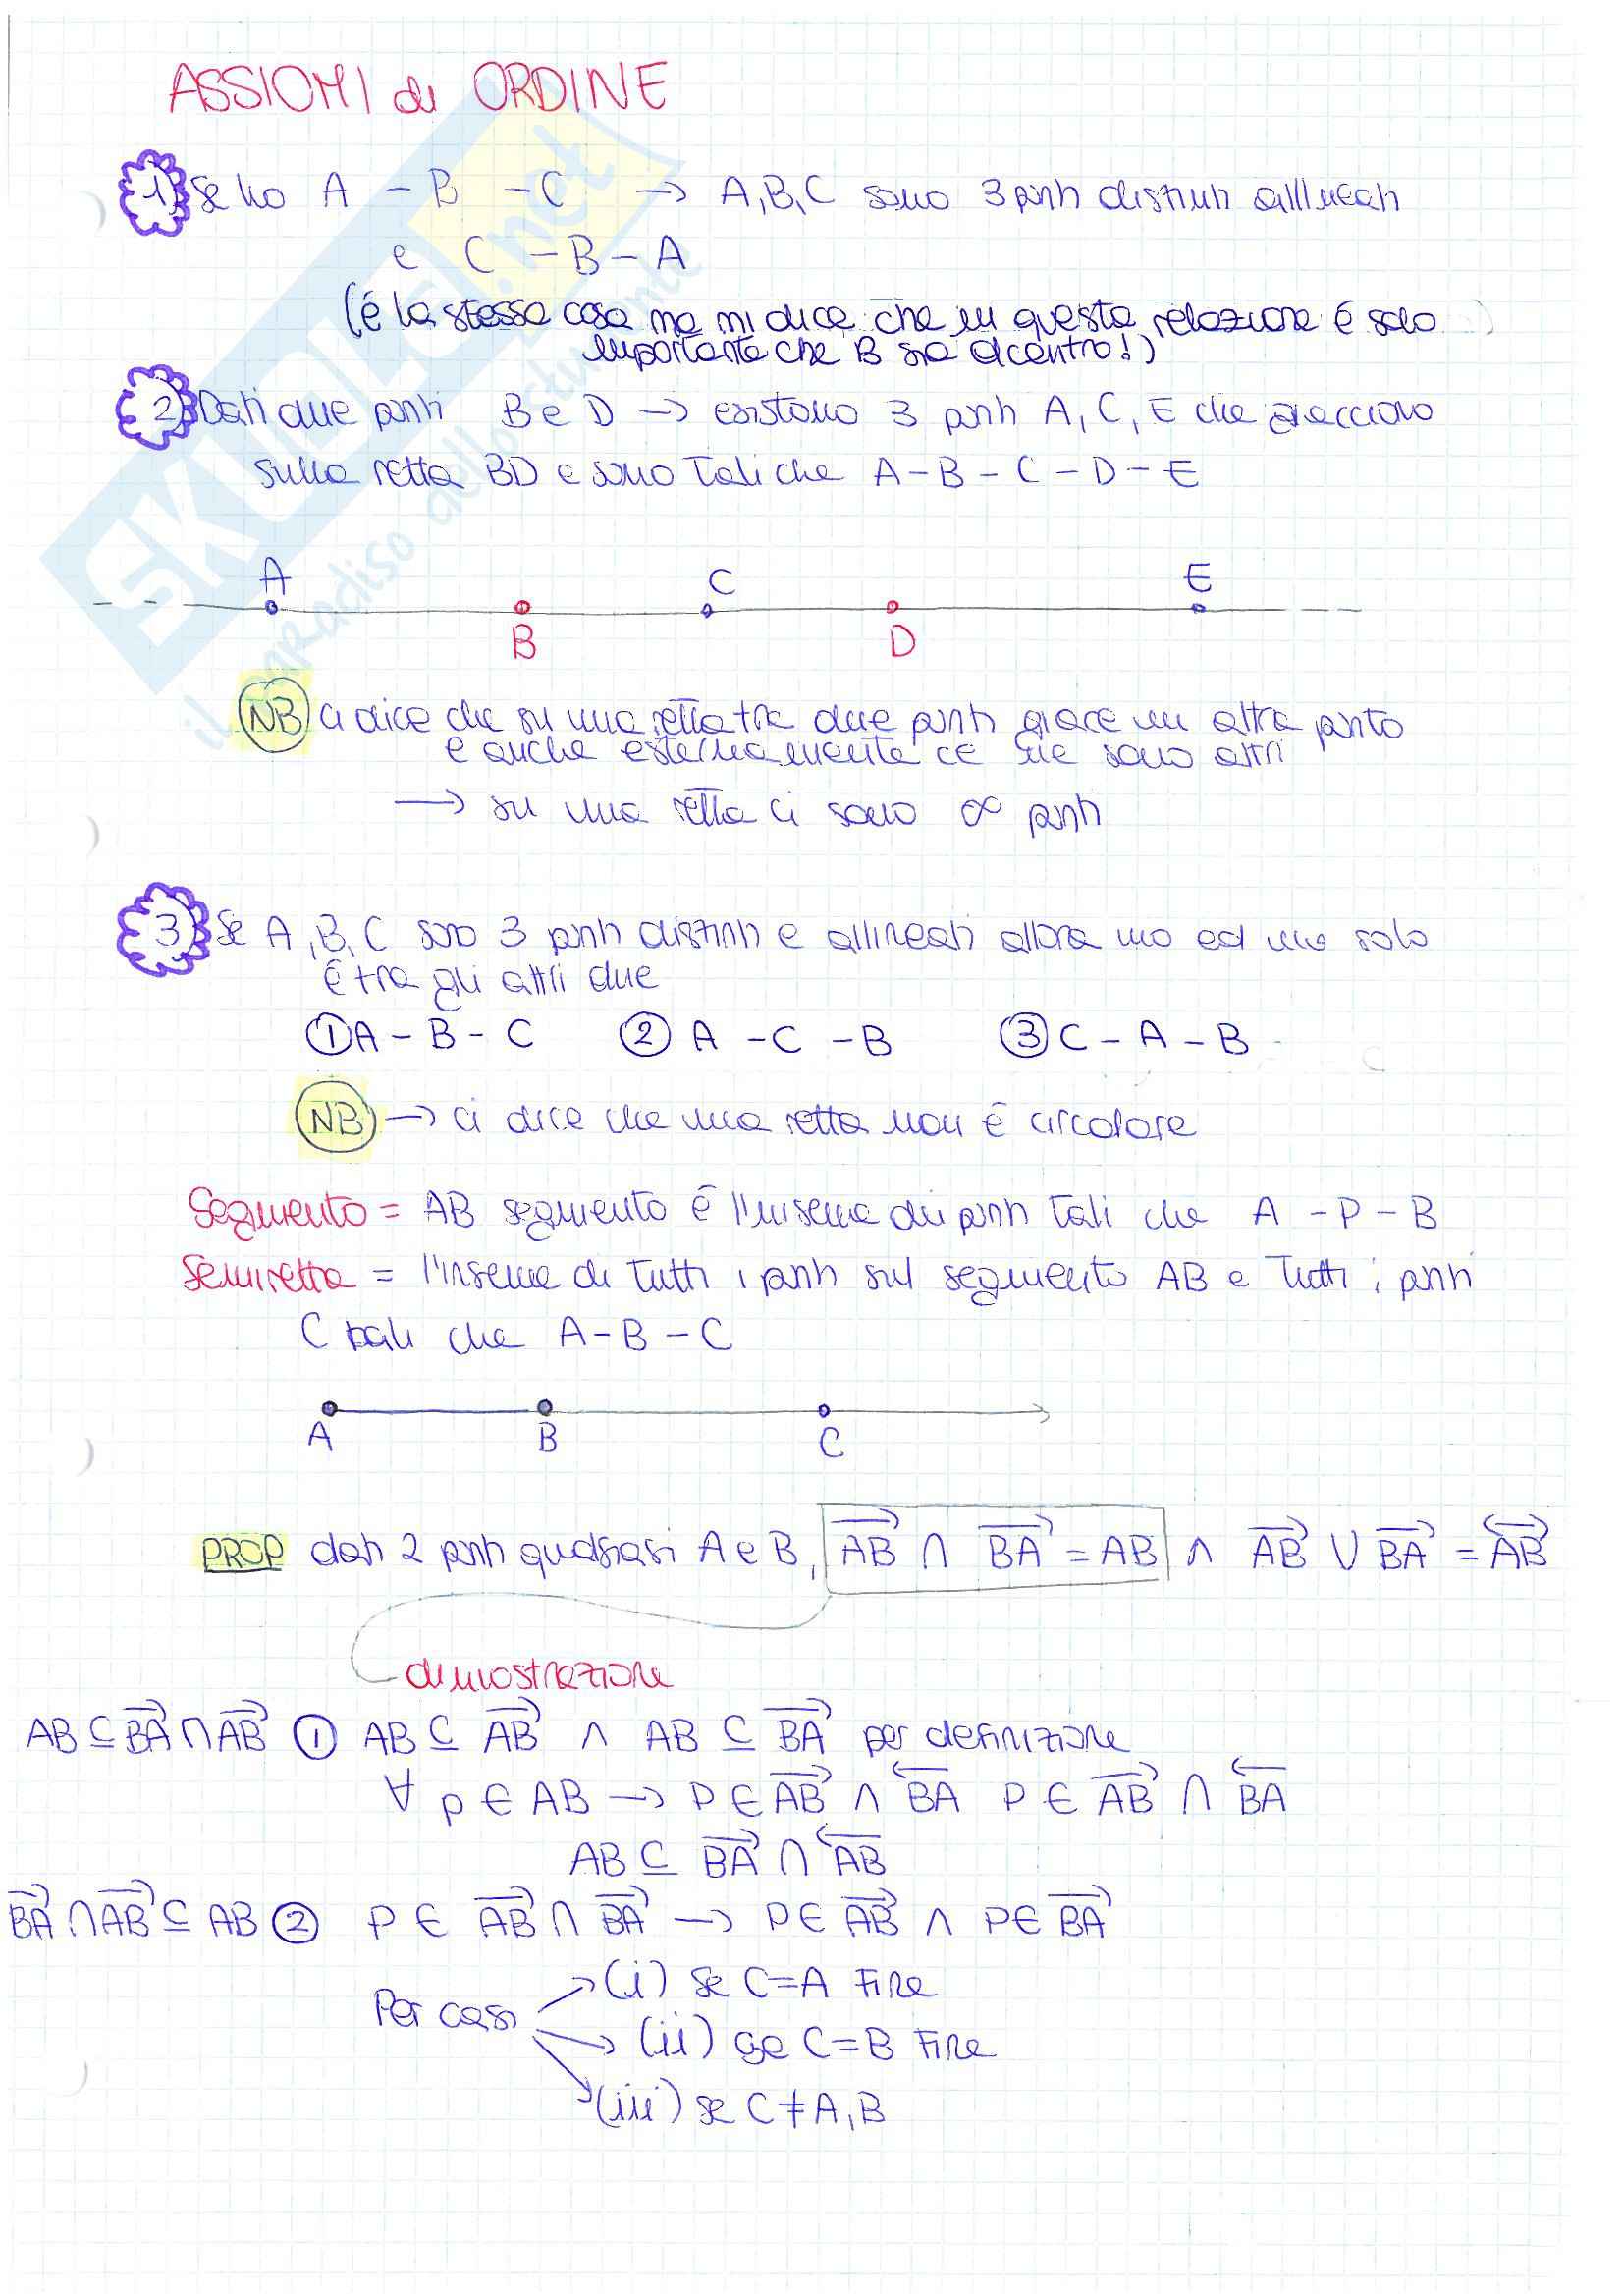 ASSIOMI di ORDINE
1) Se ho A - B - C → A, B, C sono 3 punti distinti allineati
e C - B - A
(è la stessa cosa ma mi dice che in questa relazione è solo
importante che B sia al centro!)
2) Dati due punti B e D → esistono 3 punti A, C, E che giacciono
sulla retta BD e sono tali che A - B - C - D - E
A C E
B D
NB ci dice che su una retta tra due punti giace un altro punto
e anche esternamente ce ne sono altri
→ su una retta ci sono ∞ punti
3) Se A, B, C sono 3 punti distinti e allineati allora uno ed uno solo
è tra gli altri due
① A - B - C ② A - C - B ③ C - A - B
NB → ci dice che una retta non è circolare
Segmento = AB segmento è l'insieme di punti tali che A - P - B
Semiretta = l'insieme di tutti i punti sul segmento AB e tutti i punti
C tali che A - B - C
A B C
PROP dati 2 punti qualsiasi A e B, A⃗B⃗ ∩ B⃗A⃗ = AB ∧ A⃗B⃗ ∪ B⃗A⃗ = A⃡B⃡
dimostrazione
AB ⊆ B⃗A⃗ ∩ A⃗B⃗ ① AB ⊆ A⃗B⃗ ∧ AB ⊆ B⃗A⃗ per definizione
∀ p ∈ AB → P ∈ A⃗B⃗ ∧ B⃖A⃖ P ∈ A⃗B⃗ ∩ B⃖A⃖
AB ⊆ B⃗A⃗ ∩ A⃖B⃖
B⃗A⃗ ∩ A⃗B⃗ ⊆ AB ② P ∈ A⃗B⃗ ∩ B⃗A⃗ → P ∈ A⃗B⃗ ∧ P ∈ B⃗A⃗
Per casi → (i) se C = A Fine
→ (ii) se C = B Fine
→ (iii) se C ≠ A, B
SKUOLA.net
il paradiso dello studente